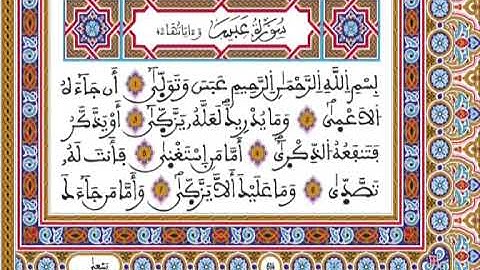 سُورَةُ عَبَسَ وَءَايَاتُهَا
بِسْمِ اللَّهِ الرَّحْمَٰنِ الرَّحِيمِ عَبَسَ وَتَوَلَّىٰٓ أَن جَآءَهُ
اُ۬لَاعْمَىٰ وَمَا يُدْرِيكَ لَعَلَّهُۥ يَزَّكَّىٰٓ أَوْ يَذَّكَّرُ
فَتَنفَعُهُ اُ۬لذِّكْرَىٰٓ أَمَّا مَنِ اِ۪سْتَغْنَىٰ فَأَنتَ لَهُۥ
تَصَّدَّىٰ وَمَا عَلَيْكَ أَلَّا يَزَّكَّىٰ وَأَمَّا مَن جَآءَكَ
يَسْعَىٰ